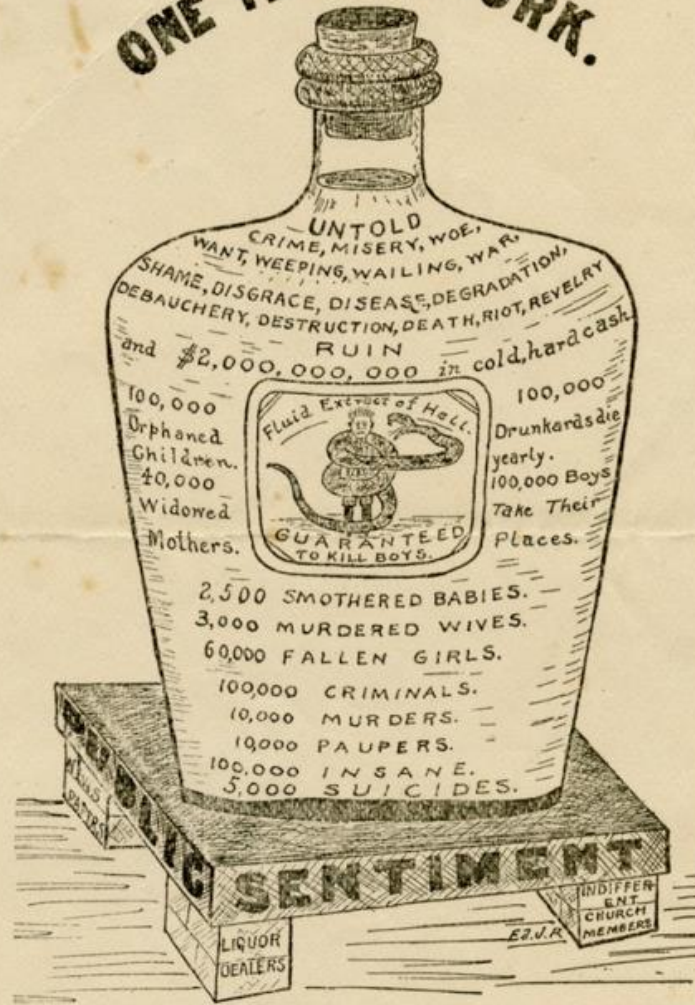 ONE
ORK.
UNTOLD
CRIME, MISERY, WOE,
WANT, WEEPING, WAILING, WAR,
SHAME, DISGRACE, DISEASE, DEGRADATION,
DEBAUCHERY, DESTRUCTION, DEATH, RIOT, REVELRY
RUIN
and $2,000,000,000 in cold, hard cash
100,000
Orphaned
Children.
40,000
Widowed
Mothers.
Fluid Extract of Hell.
GUARANTEED
TO KILL BOYS.
100,000
Drunkards die
yearly.
100,000 Boys
Take Their
Places.
2,500 SMOTHERED BABIES.
3,000 MURDERED WIVES.
60,000 FALLEN GIRLS.
100,000 CRIMINALS.
10,000 MURDERS.
10,000 PAUPERS.
100,000 INSANE.
5,000 SUICIDES.
PUBLIC SENTIMENT
NEWS
PAPERS
LIQUOR
DEALERS
INDIFFER
ENT
CHURCH
MEMBERS